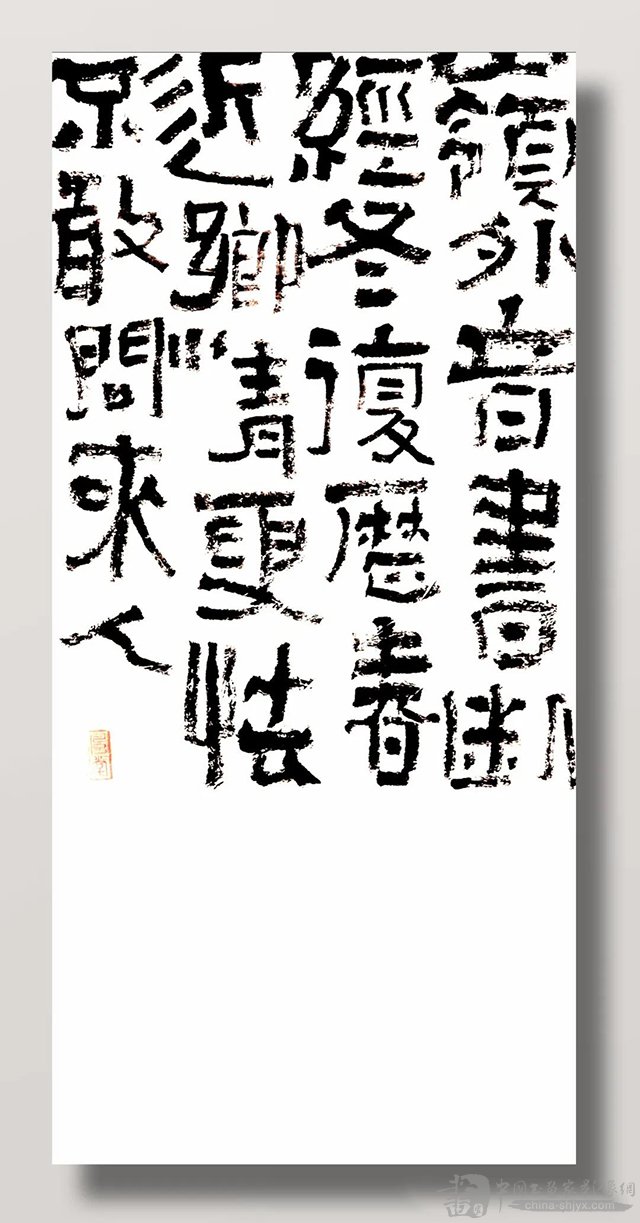 嶺外音書斷
經冬復歷春
近鄉情更怯
不敢問來人
china-shjyx.com